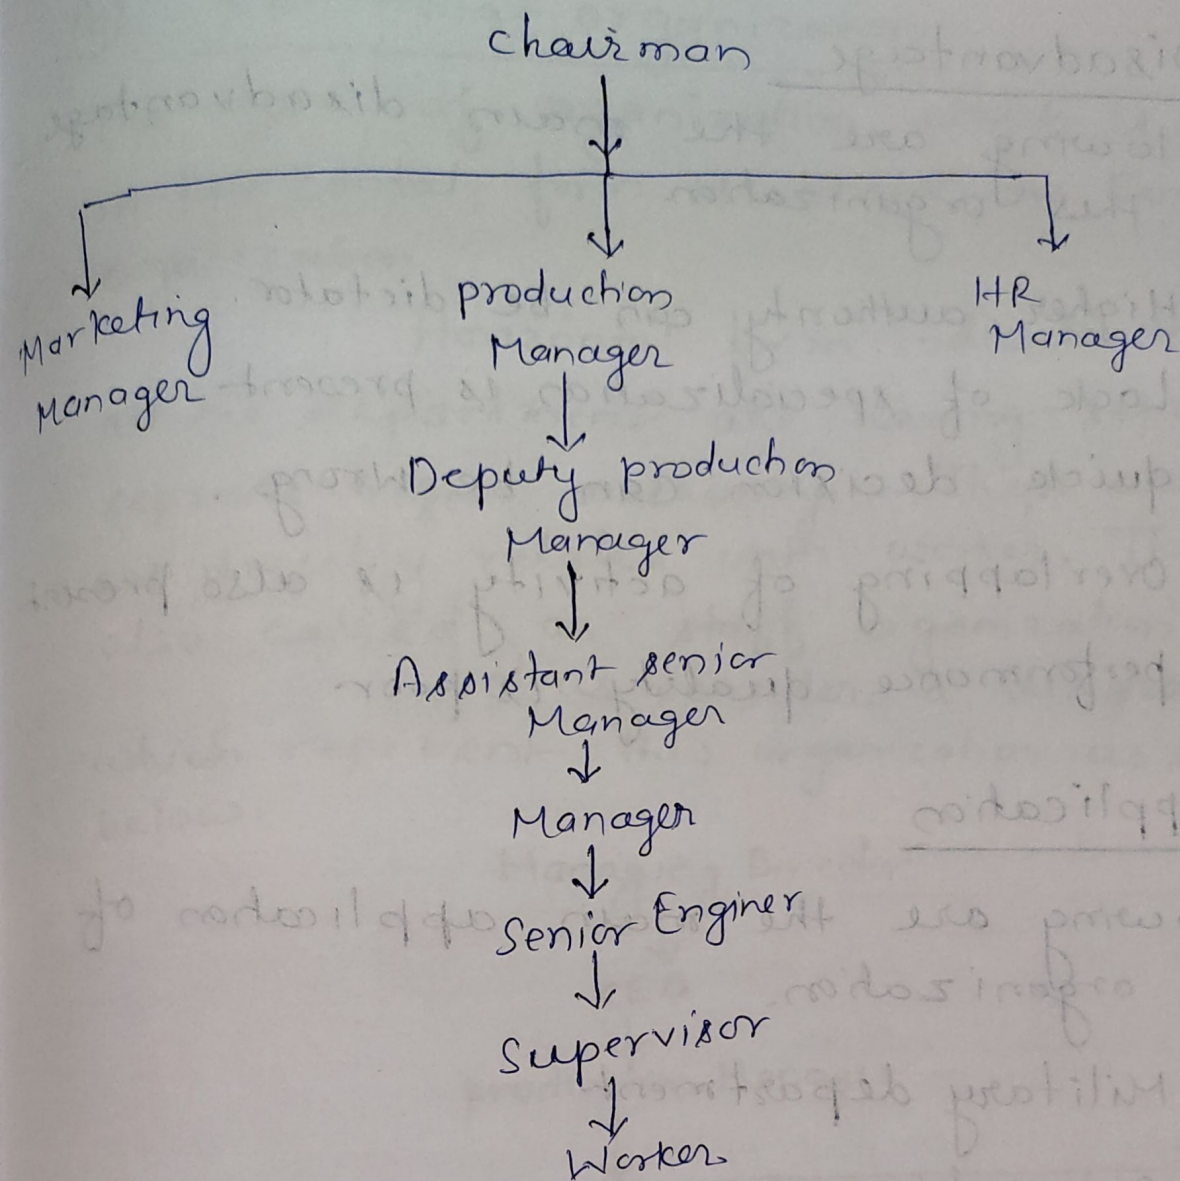 Chairman
Marketing
Manager
production
Manager
HR
Manager
Deputy production
Manager
Assistant senior
Manager
Manager
Senior Enginer
Supervisor
Worker